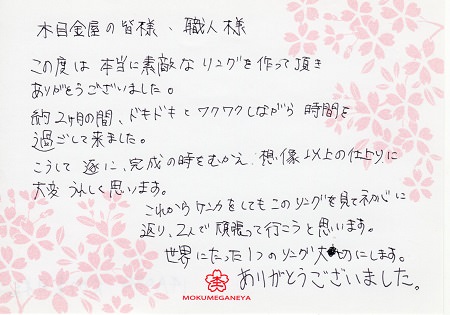 木目金屋の皆様、職人様
この度は本当に素敵なリングを作って頂き
ありがとうございました。
約2ヶ月の間、ドキドキとワクワクしながら時間を
過ごして来ました。
こうして遂に、完成の時をむかえ、想像以上の仕上りに
大変うれしく思います。
これからケンカをしてもこのリングを見て初心に
返り、2人で頑張って行こうと思います。
世界にたった1つのリング大切にします。
ありがとうございました。
MOKUMEGANEYA